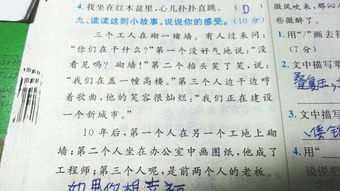 4.我坐在红木盆里,心儿扑扑直跳。 (D)
九、读读这则小故事,说说你的感受。(10分)
三个工人在砌一堵墙。有人过来问:
"你们在干什么?"第一个没好气地说:"没
看见吗?砌墙!"第二个抬头笑了笑,说:
"我们在盖一幢高楼。"第三个人边干边哼
着歌曲,他的笑容很灿烂:"我们正在建设
一个新城市。"
10年后,第一个人在另一个工地上砌
墙;第二个人坐在办公室中画图纸,他成了
工程师;第三个人呢,是前两个人的老板。
微风吹来,那沁
些微醉了。
1.用"/"画去括
(7分)
2.文中描写苹
3.文中描写
4.用"
说说把